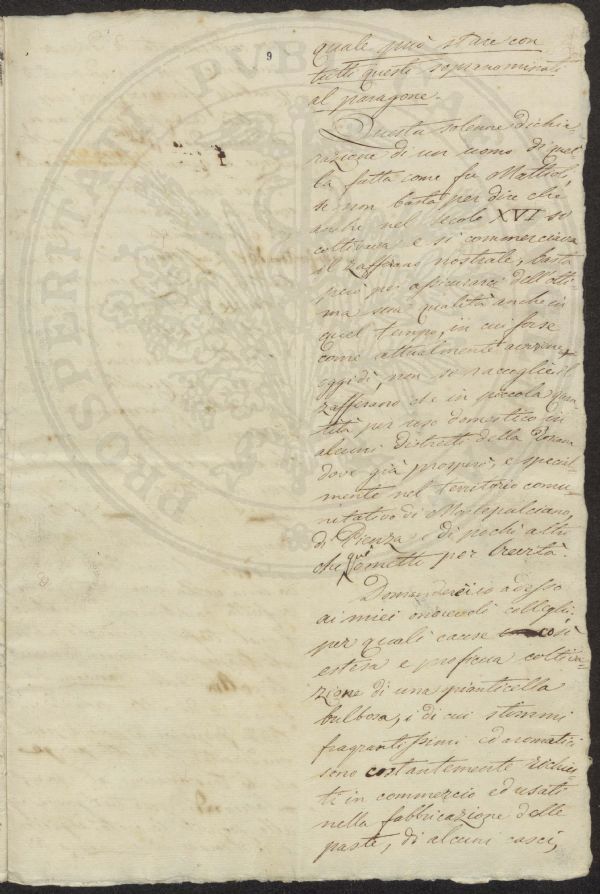 9
quale può stare con
tutti questi sopranominati
al paragone.
Questa solenne dichia
razione di un uomo di quel
la fatta come fu Mattioli,
se non basta per dire che
anche nel secolo XVI si
coltivava e si commerciava
il zafferano nostrale, basta
però per assicurarci dell'otti
ma sua qualità anche in
quel tempo, in cui forse
come attualmente avviene
oggidì, non si raccoglie il
zafferano che in piccola quan
tità per uso domestico in
alcuni distretti della
dove già prosperò, e special
mente nel territorio comu-
nitativo di Montepulciano,
di Pienza e di pochi altri
che quì ometto per brevità.
Domanderei io adesso
ai miei onorevoli colleghi
per quali cause così
estesa e proficua coltiva-
zione di una pianticella
bulbosa, i di cui stimmi
fragrantissimi ed aromatici
sono costantemente richies
ti in commercio ed usati
nella fabbricazione delle
paste, di alcuni cacj,
PROSPERITATI PUBLICAE